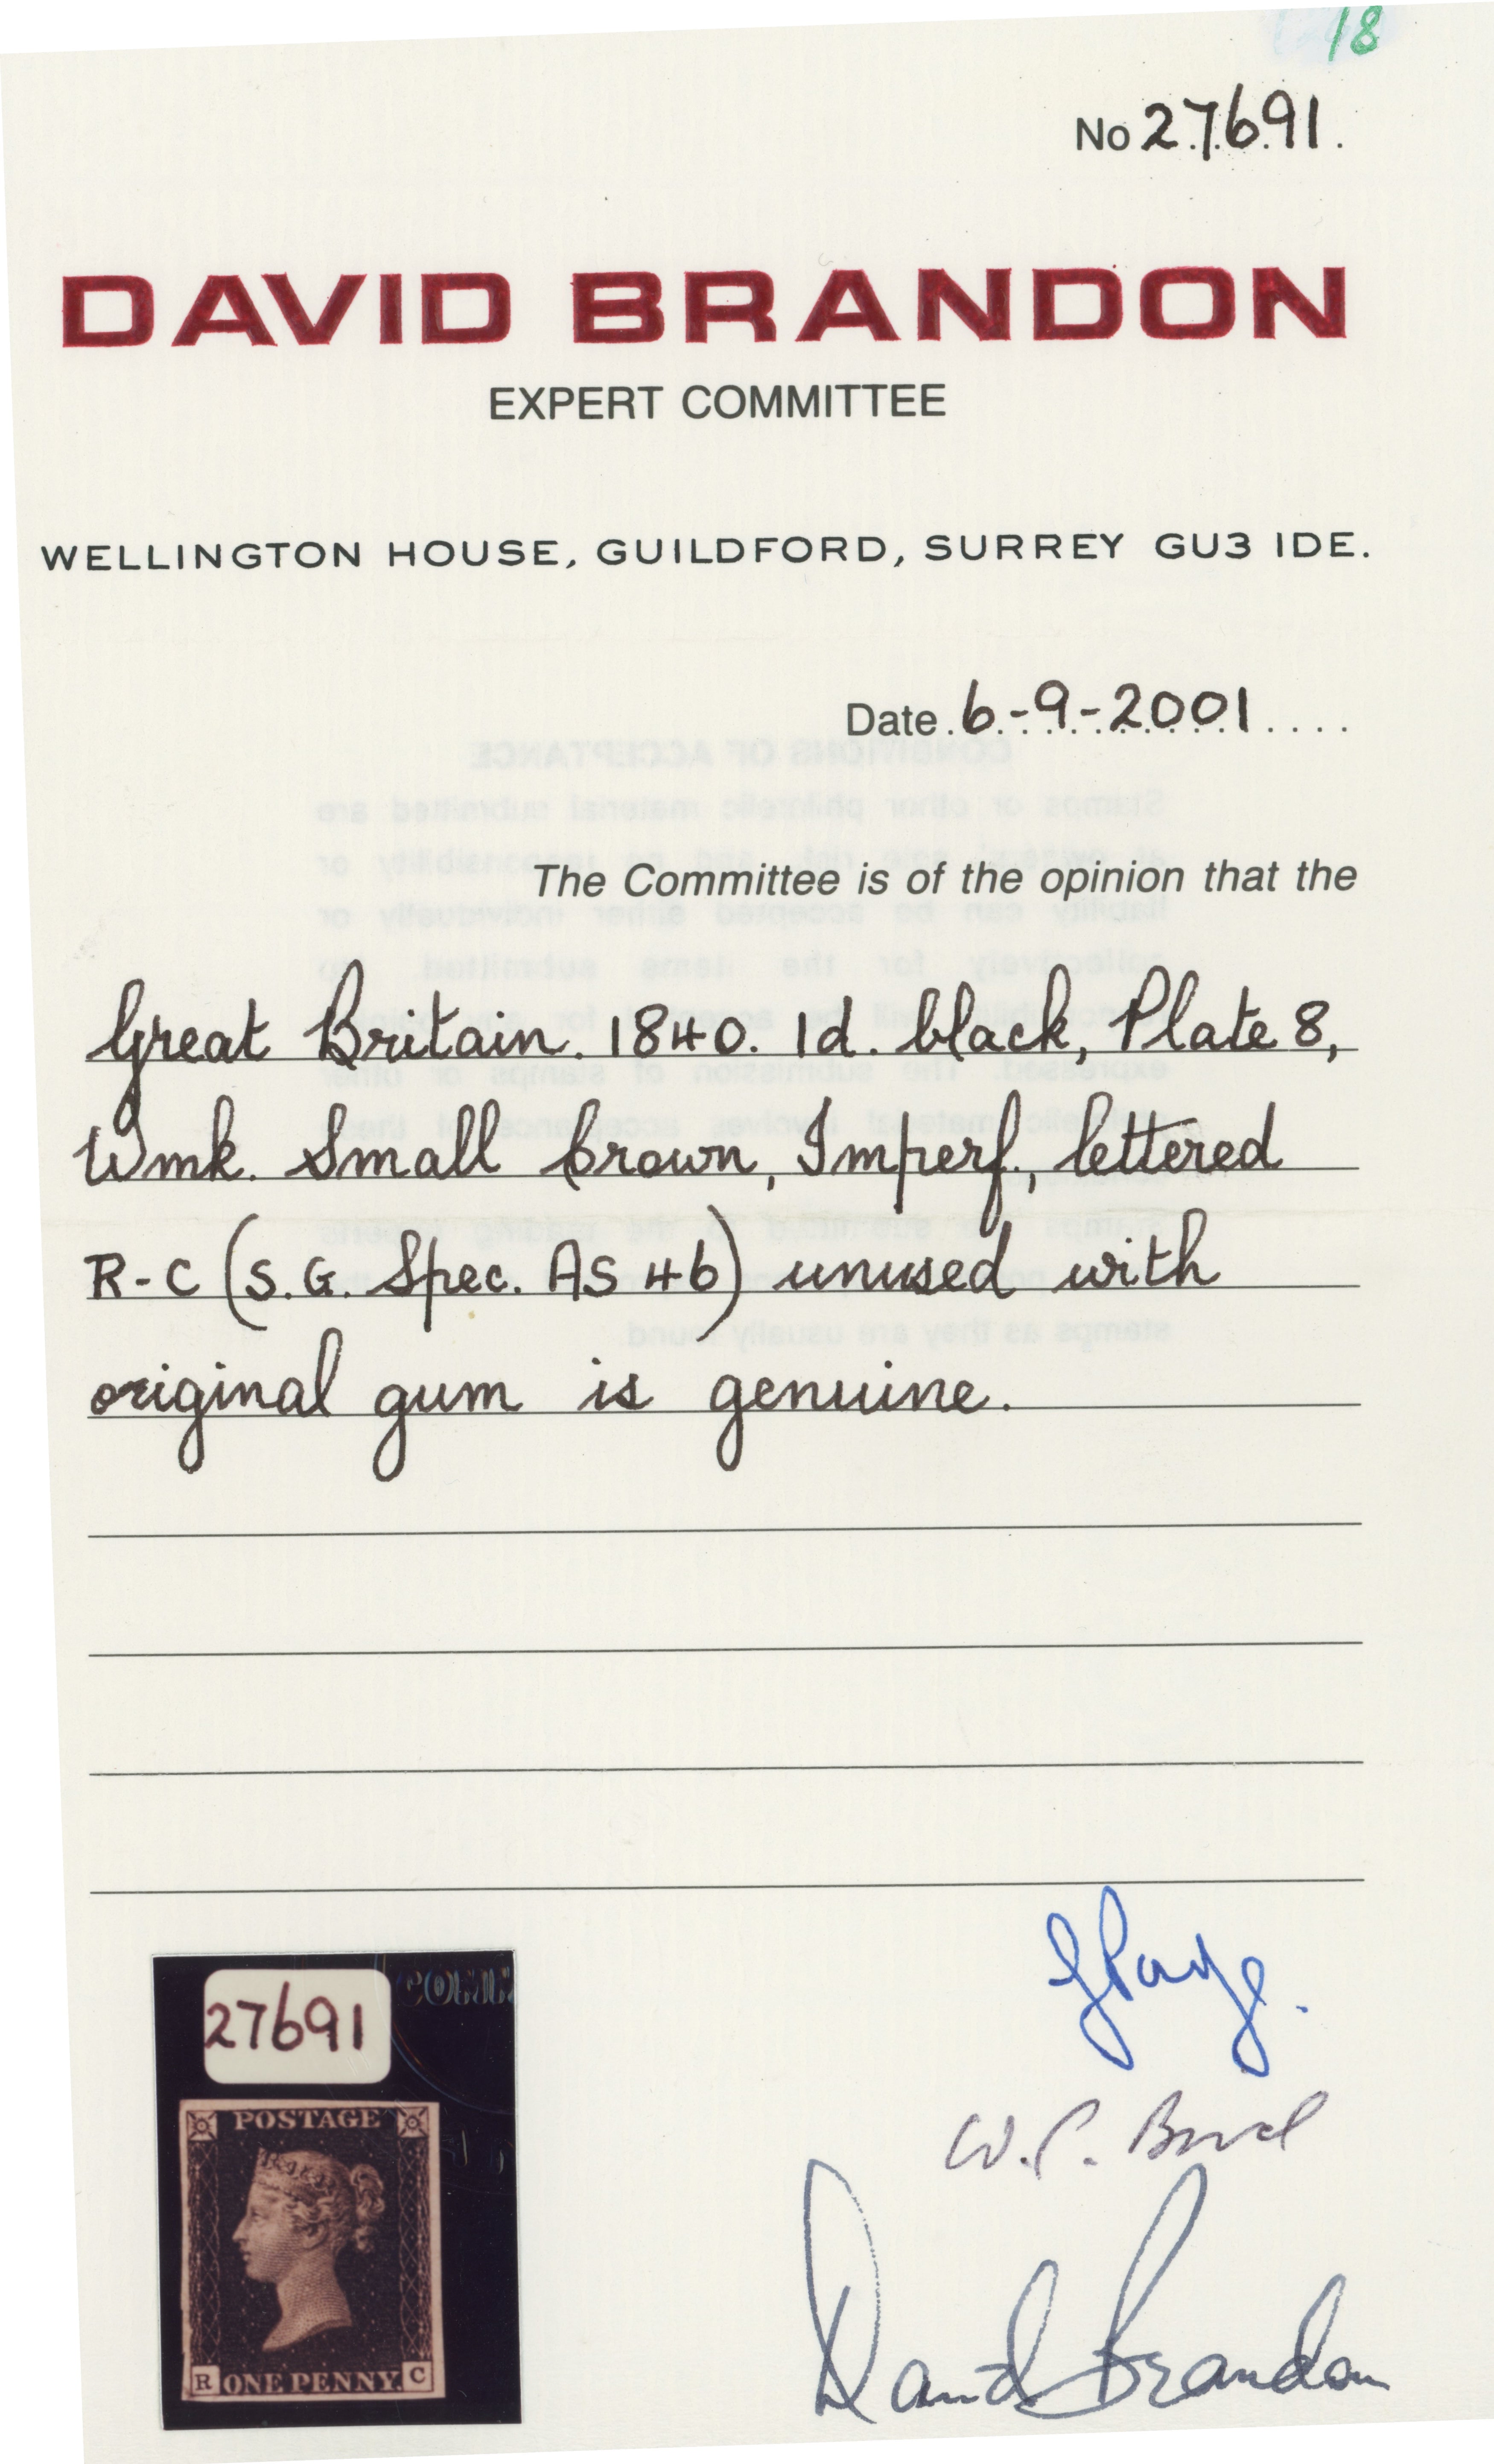 18
No 27691.
DAVID BRANDON
EXPERT COMMITTEE
WELLINGTON HOUSE, GUILDFORD, SURREY GU3 1DE.
Date. 6-9-2001....
The Committee is of the opinion that the
Great Britain. 1840. 1d. black, Plate 8,
Wmk. Small Crown, Imperf., lettered
R-C (S.G. Spec. AS46) unused with
original gum is genuine.
27691
POSTAGE
R ONE PENNY. C
David Brandon